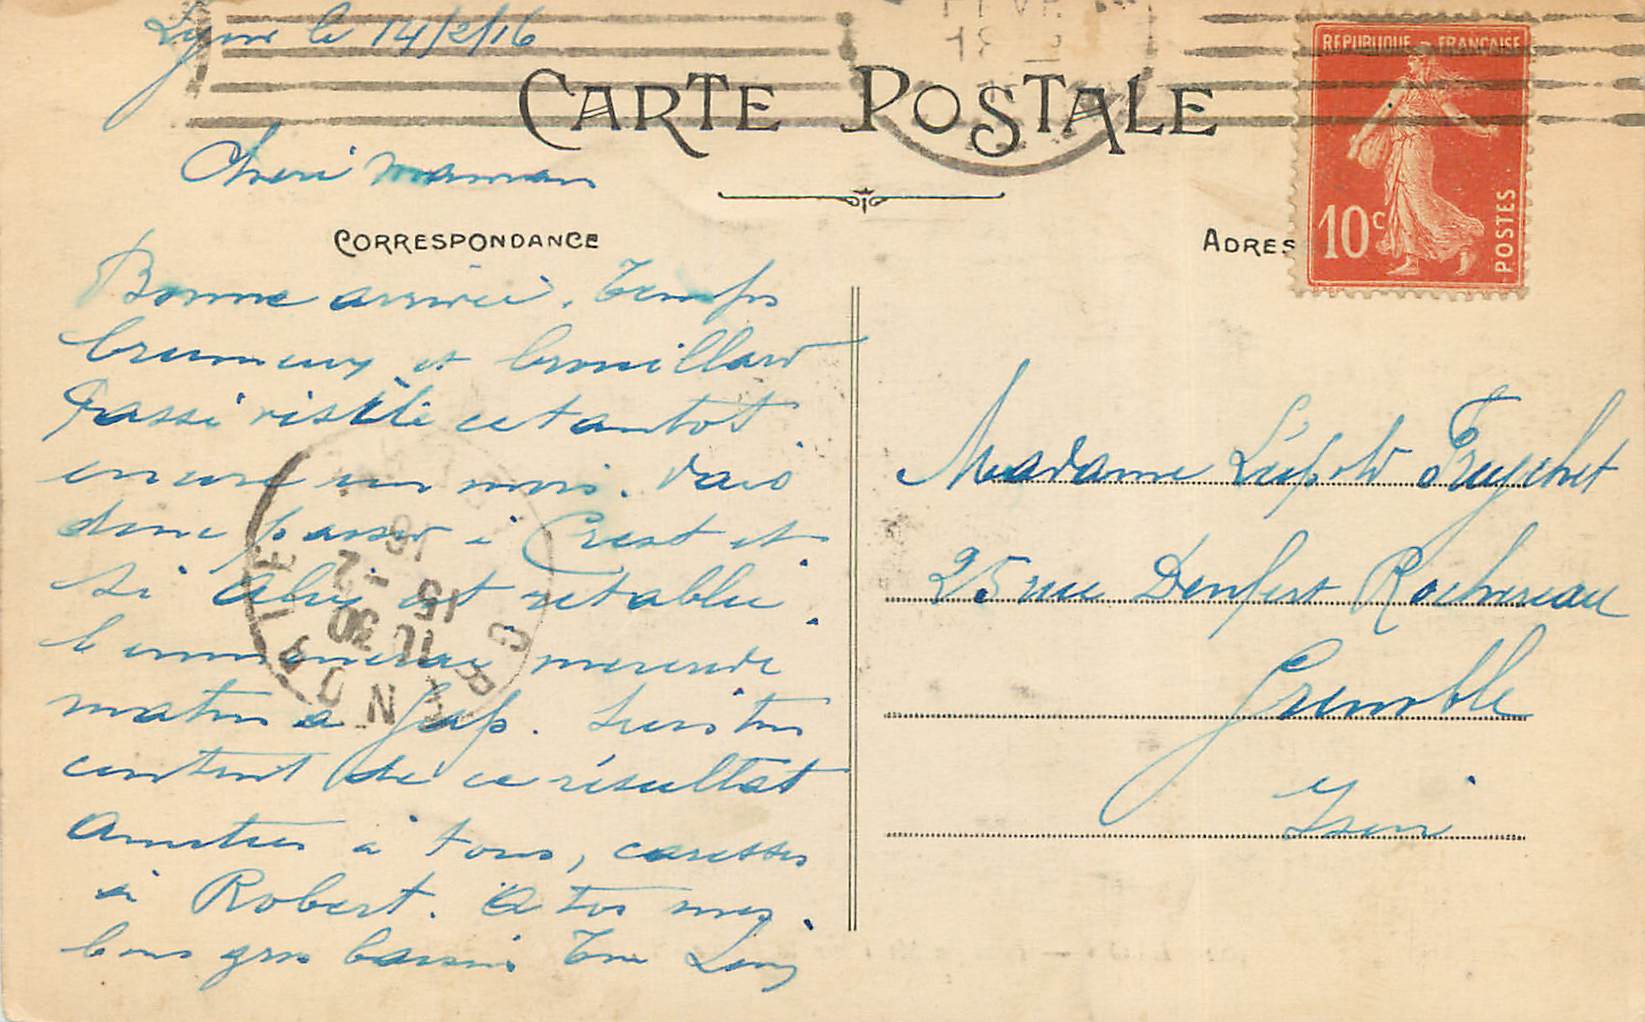 Lyon le 14/2/16
CARTE POSTALE
RÉPUBLIQUE FRANÇAISE
10c
POSTES
Cheri maman
CORRESPONDANCE
ADRES
Bonne arrivée. Temps
brumeux et brouillard
Passé visite cet antot
encore un mois. Vais
donc passer à Crest et
si est rétablie
merende
matin a Gap. Suis très
content de ce résultat
Amitiés à tous, caresses
à Robert. A toi mes
bons gros baisers Ton
Madame Léopold
25 rue Denfert Rochereau
Grenoble
Isère
GRENOBLE
10 30
15 -2
16